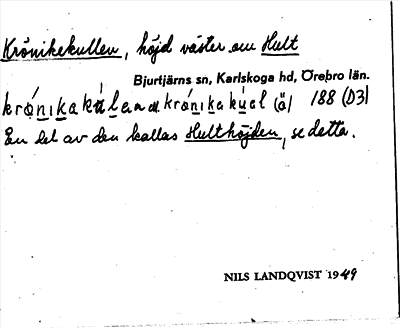 Krönikekullen, höjd väster om Hult
Bjurtjärns sn, Karlskoga hd, Örebro län.
krónikakúlaɴ krónikakúel (ö) 188 (D3)
En del av den kallas Hulthöjden, se detta.
NILS LANDQVIST 1949